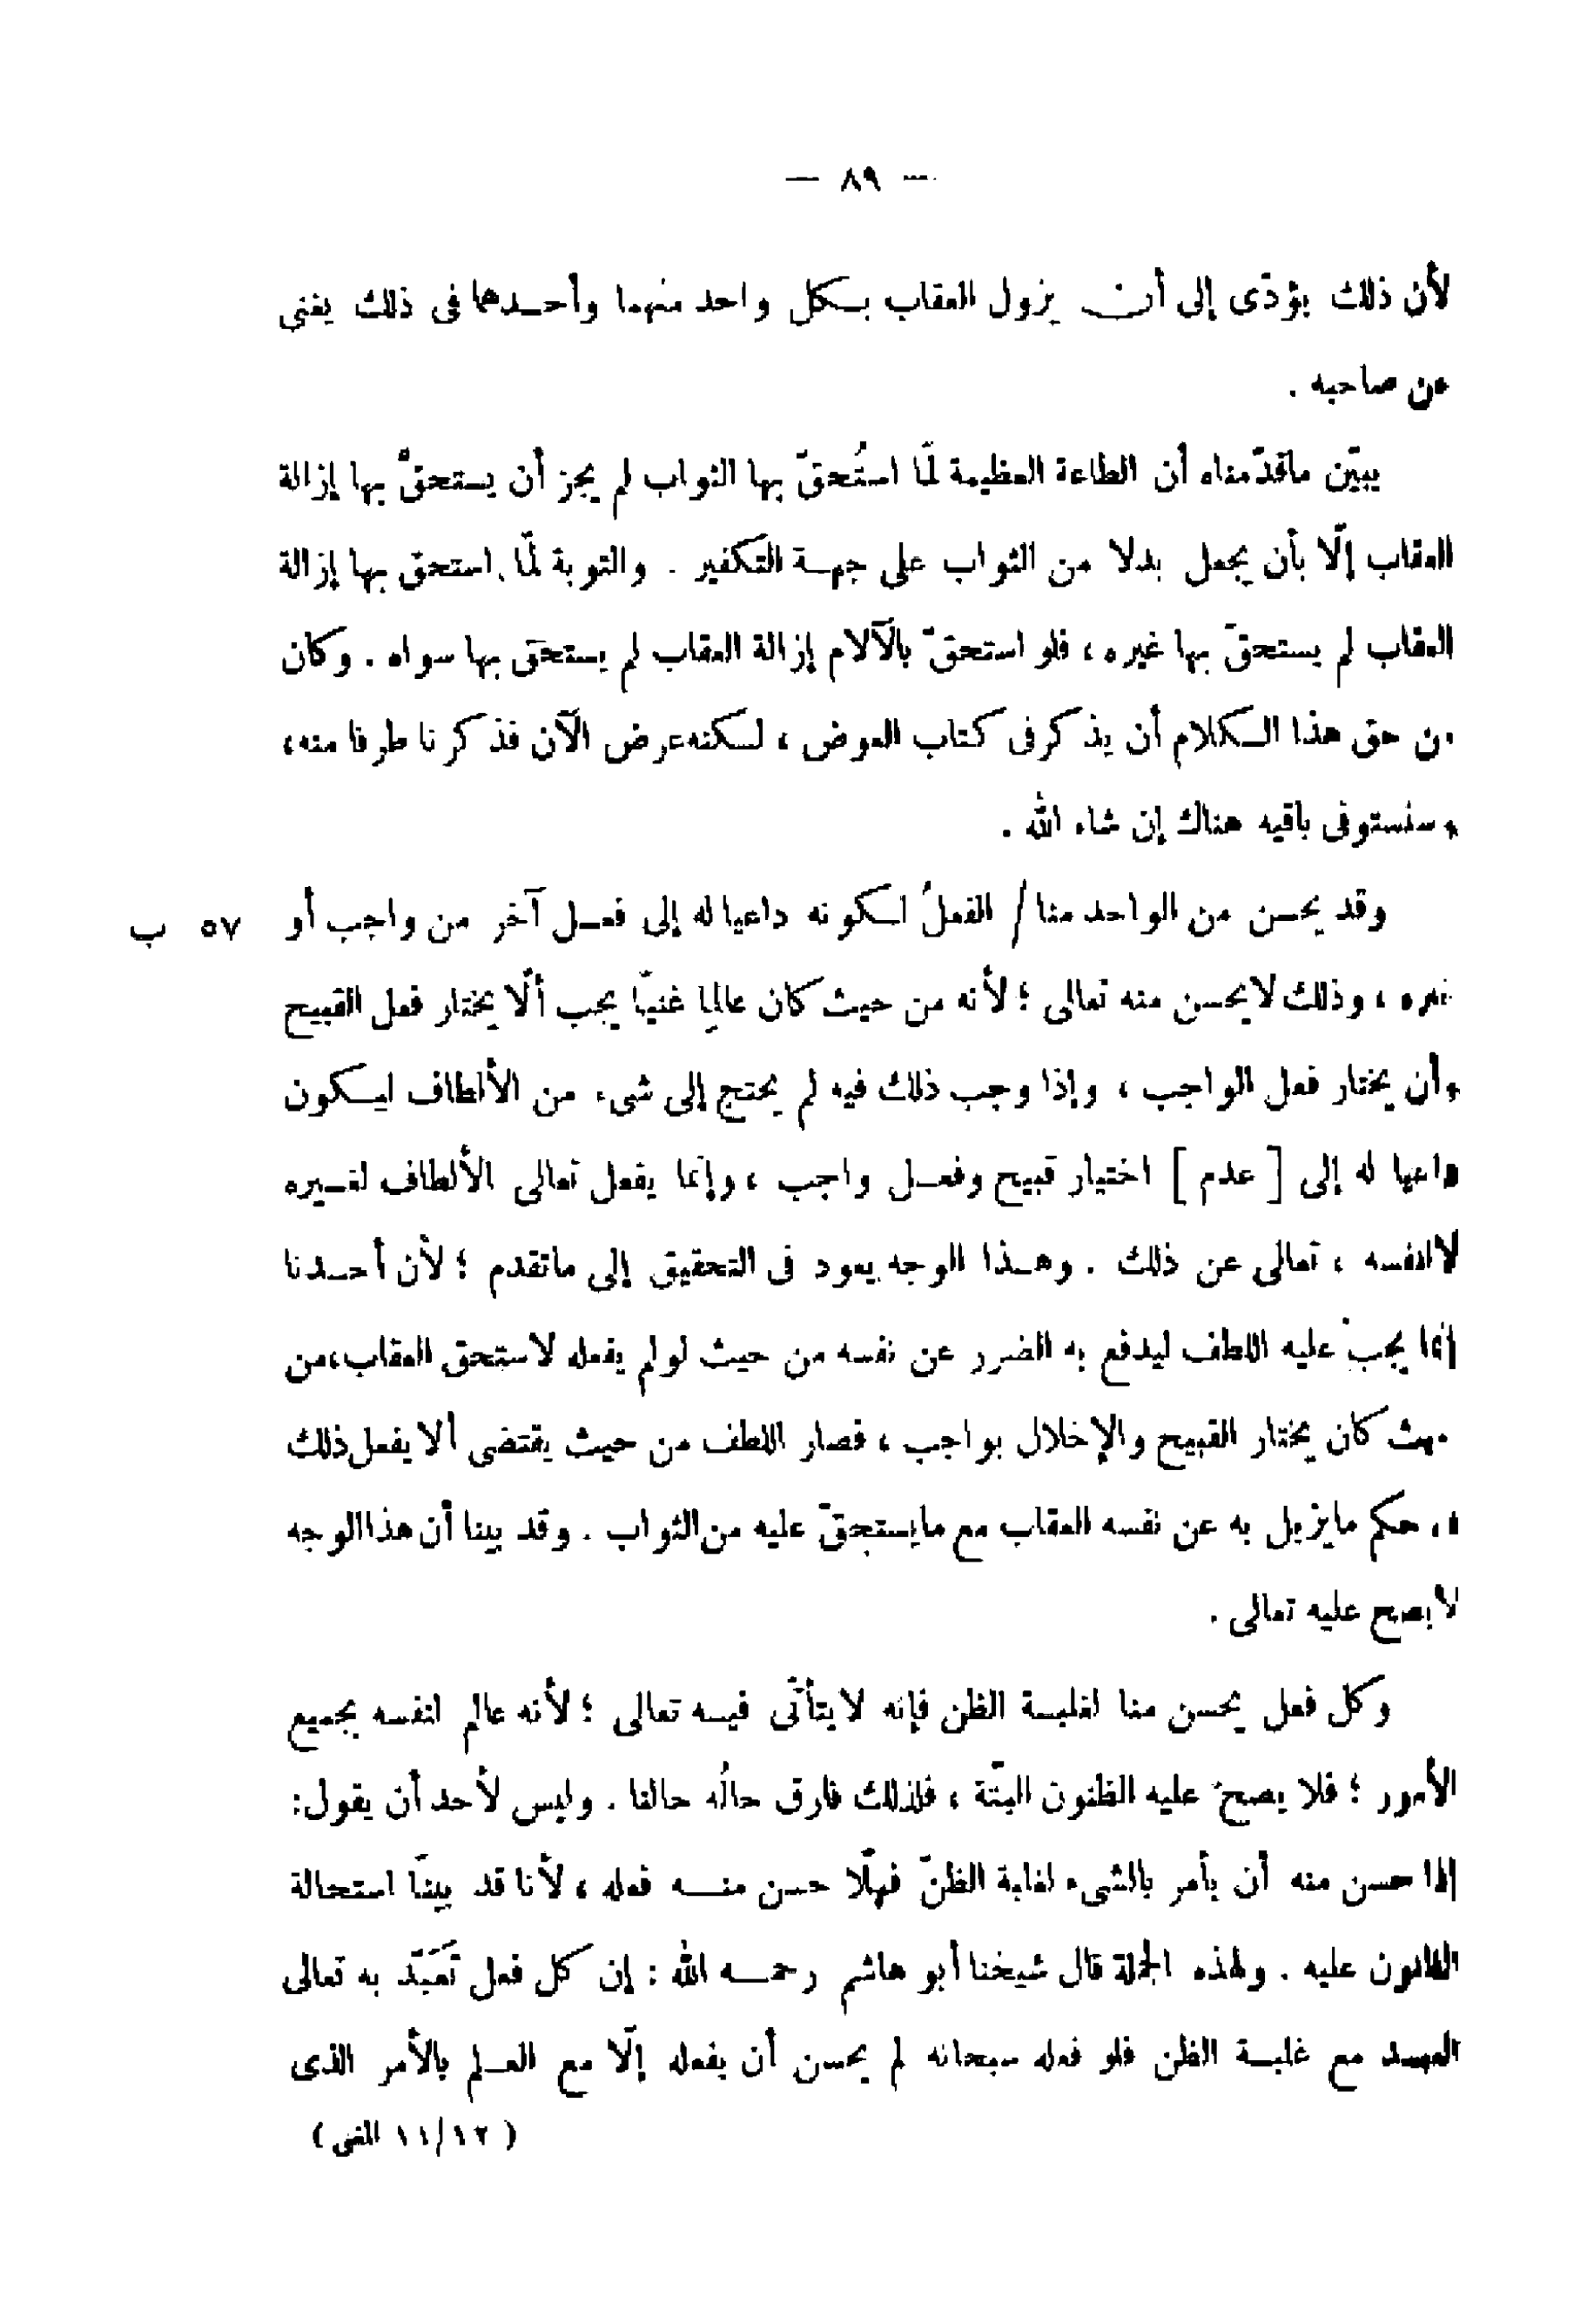 — ٨٩ —
لأن ذلك يؤدّى إلى أن يزول العقاب بكل واحد منهما وأحدهما فى ذلك يغنى
عن صاحبه .
يبيّن ماقدّمناه أن الطاعة العظيمة لمّا استُحقّ بها الثواب لم يجز أن يستحقّ بها إزالة
العقاب إلّا بأن يجعل بدلا من الثواب على جهة التكفير . والتوبة لمّا استحق بها إزالة
العقاب لم يستحقّ بها غيره ، فلو استحقّ بالآلام إزالة العقاب لم يستحق بها سواه . وكان
من حق هذا الكلام أن يذكر فى كتاب العوض ، لكنه عرض الآن فذكرنا طرفا منه ،
وسنستوفى باقيه هناك إن شاء الله .
وقد يحسن من الواحد منا / الفعلُ لكونه داعيا له إلى فعل آخر من واجب أو ٥٧ ب
غيره ، وذلك لايحسن منه تعالى ؛ لأنه من حيث كان عالما غنيّا يجب ألّا يختار فعل القبيح
وأن يختار فعل الواجب ، وإذا وجب ذلك فيه لم يحتج إلى شىء من الألطاف ليكون
داعيا له إلى [ عدم ] اختيار قبيح وفعل واجب ، وإنما يفعل تعالى الألطاف لغيره
لالنفسه ، تعالى عن ذلك . وهذا الوجه يعود فى التحقيق إلى ماتقدم ؛ لأن أحدنا
إنما يجب عليه اللطف ليدفع به الضرر عن نفسه من حيث لولم يفعله لاستحق العقاب ، من
حيث كان يختار القبيح والإخلال بواجب ، فصار اللطف من حيث يقتضى ألا يفعل ذلك
فى حكم مايزيل به عن نفسه العقاب مع مايستحقّ عليه من الثواب . وقد بينا أن هذا الوجه
لايصح عليه تعالى .
وكل فعل يحسن منا لغلبة الظن فإنه لايتأتّى فيه تعالى ؛ لأنه عالم لنفسه بجميع
الأمور ؛ فلا يصحّ عليه الظنون البتّة ، فلذلك فارق حالُه حالنا . وليس لأحد أن يقول :
إذا حسن منه أن يأمر بالشىء لغلبة الظنّ فهلّا حسن منه فعله ، لأنا قد بينّا استحالة
الظنون عليه . ولهذه الجملة قال شيخنا أبو هاشم رحمه الله : إن كل فعل تَعَبّد به تعالى
العبد مع غلبة الظن فلو فعله سبحانه لم يحسن أن يفعله إلّا مع العلم بالأمر الذى
( ١١/١٢ المغنى )